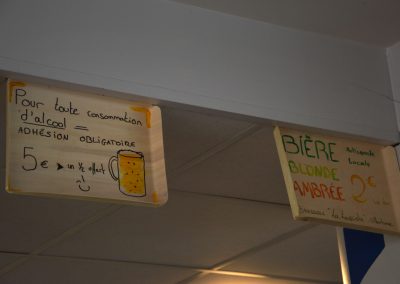 Pour toute consommation
d'alcool =
ADHÉSION OBLIGATOIRE
5€ un ½ offert
BIÈRE Artisanale
BLONDE Locale
AMBRÉE 2€